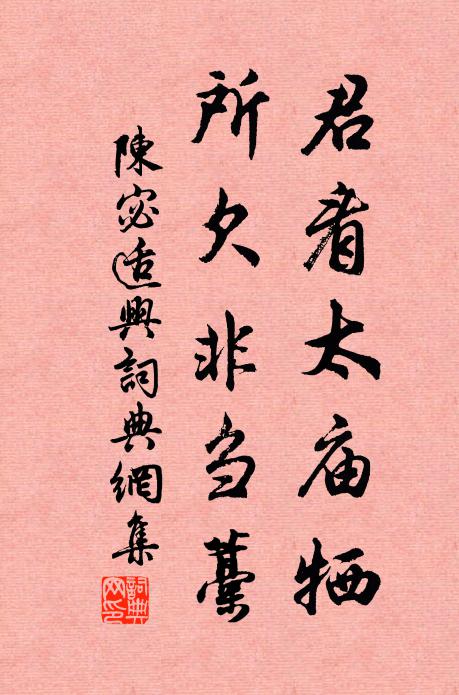 君看太庙牺
所欠非刍藁
陳宓适興詞典網集
詞典网印